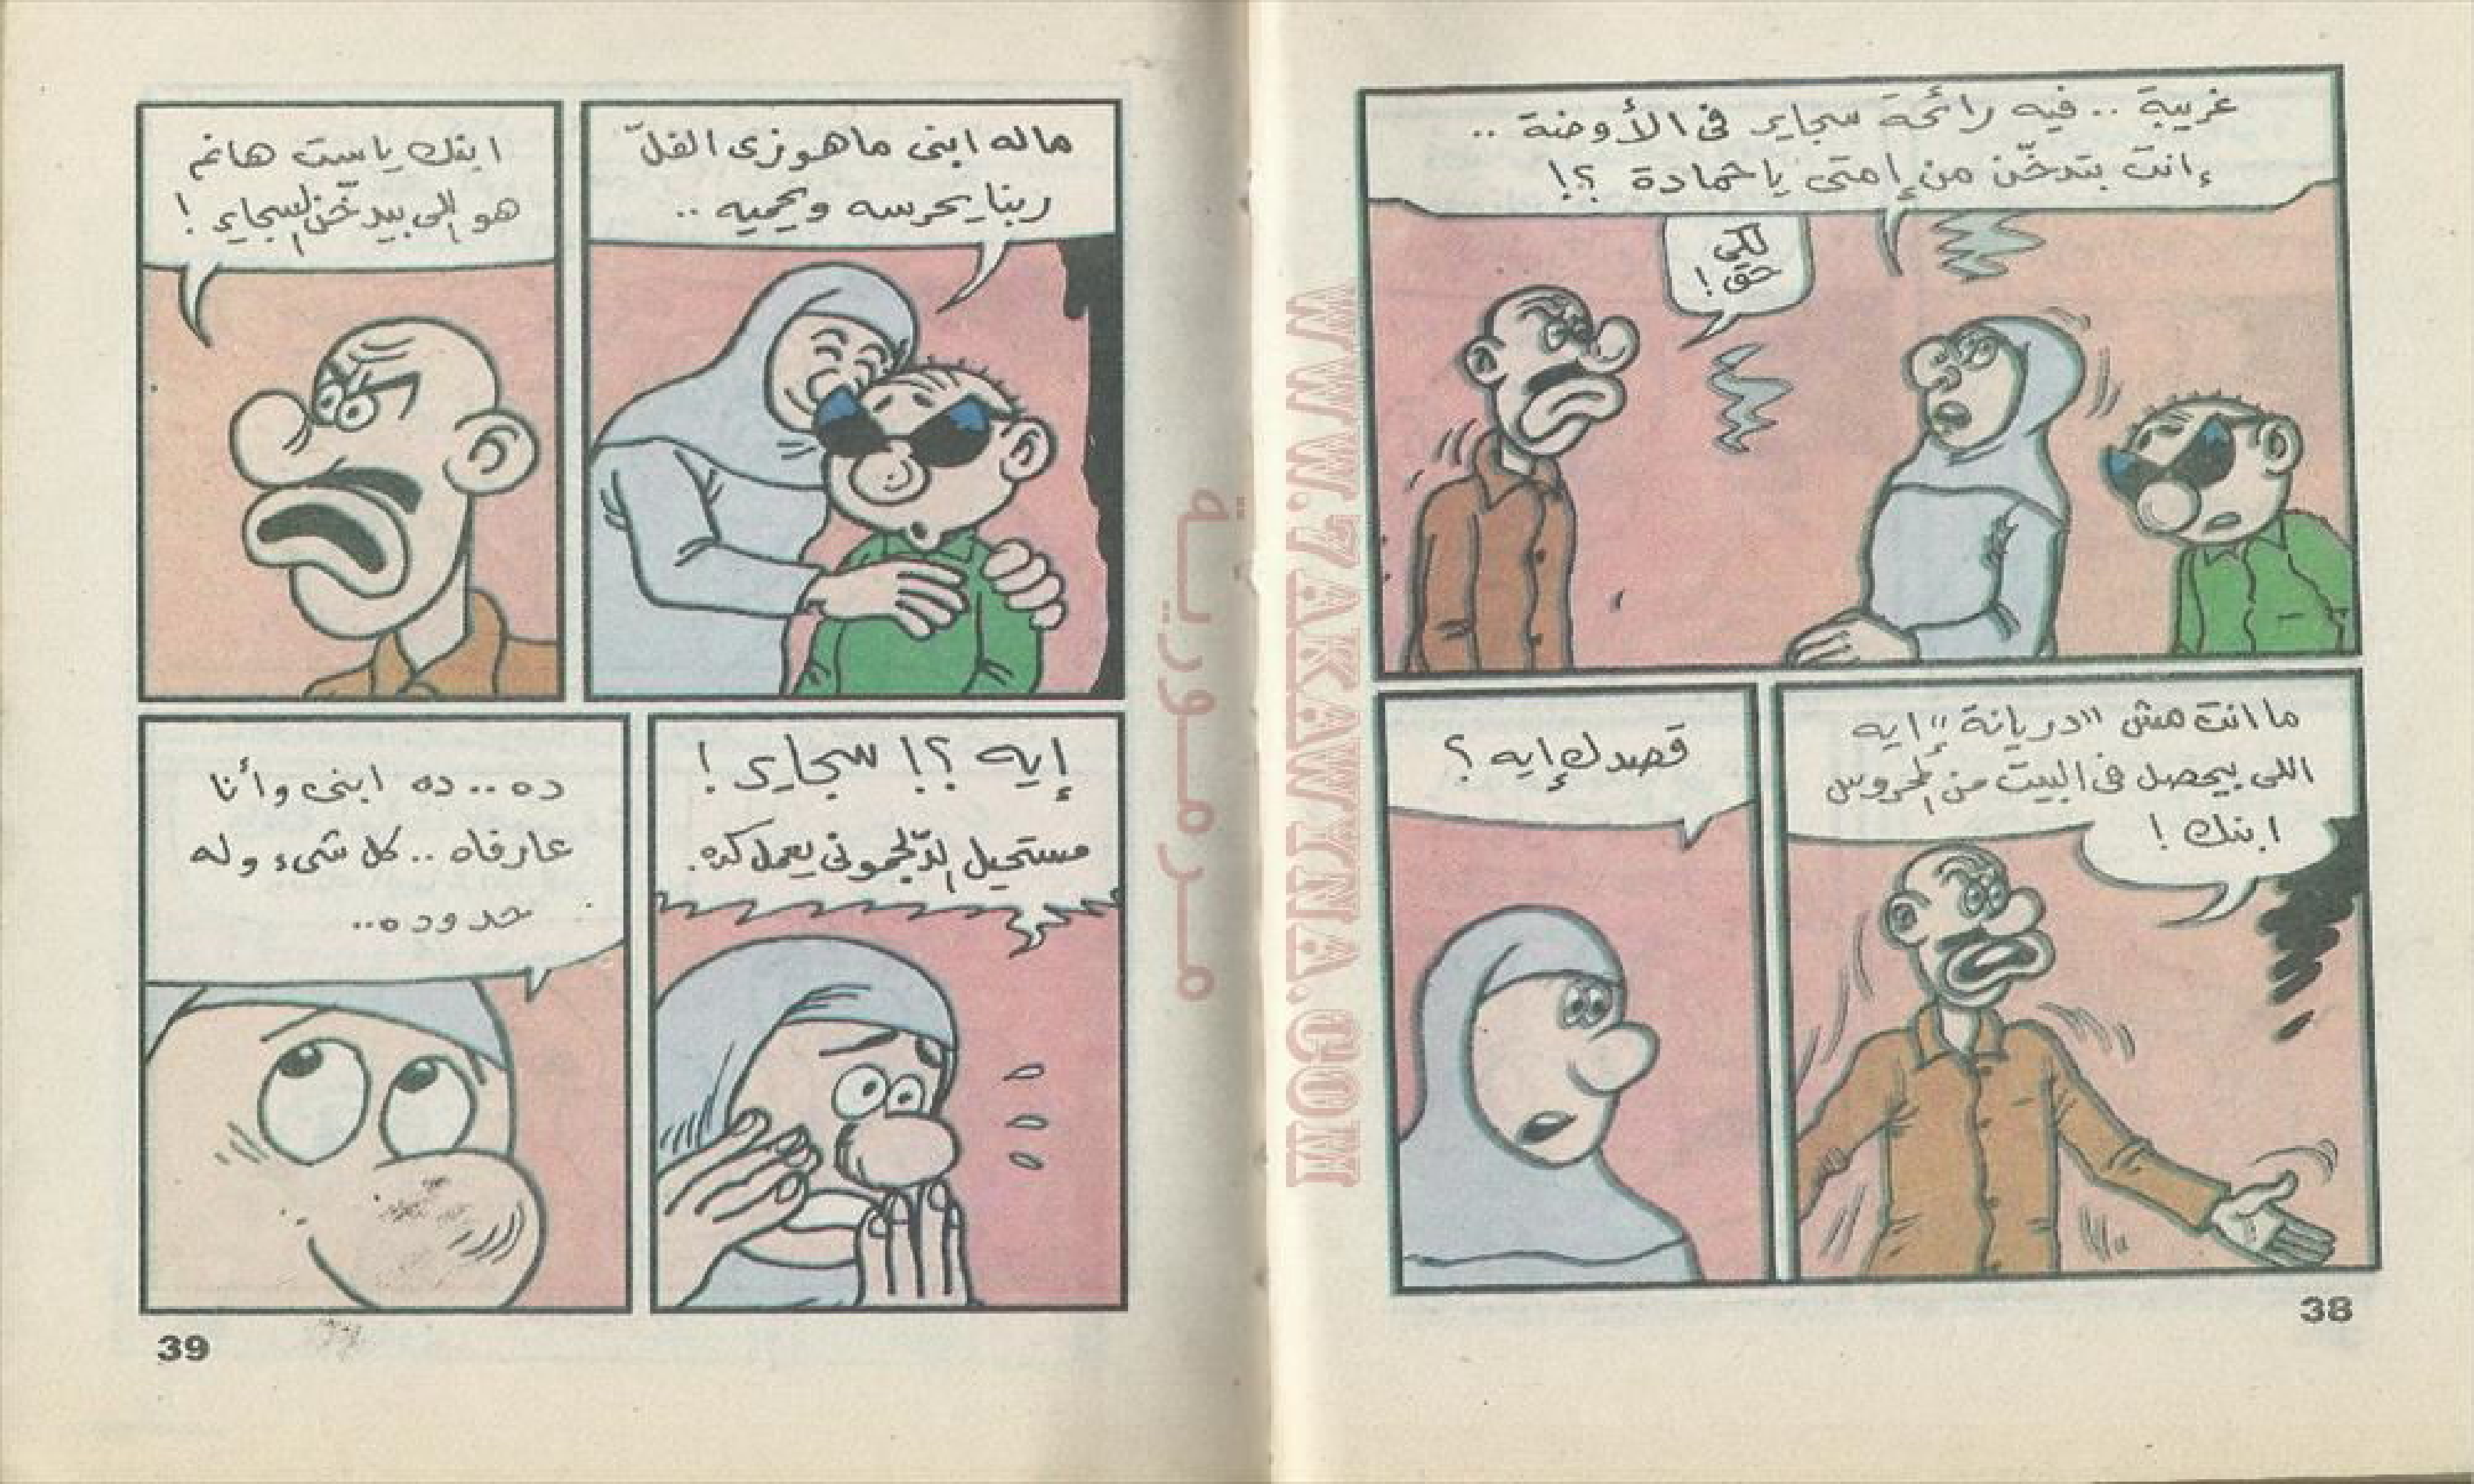 غريبة .. فيه رائحة سجاير فى الأوضة ..
إنت بتدخّن من إمتى يا حمادة ؟!
لكى
حق !
ما انت مش "دريانة" إيه
اللى بيحصل فى البيت من المحروس
ابنك !
قصدك إيه ؟
38
ماله ابنى ماهو زى الفلّ
ربنا يحرسه ويحميه ..
ابنك ياست هانم
هو اللى بيدخّن السجاير !
إيه ؟! سجاير !
مستحيل الدّلجمونى يعمل كده .
ده .. ده ابنى وأنا
عارفاه .. كل شىء وله
حدوده ..
39
مرمورية
WWW.7AKAWINA.COM